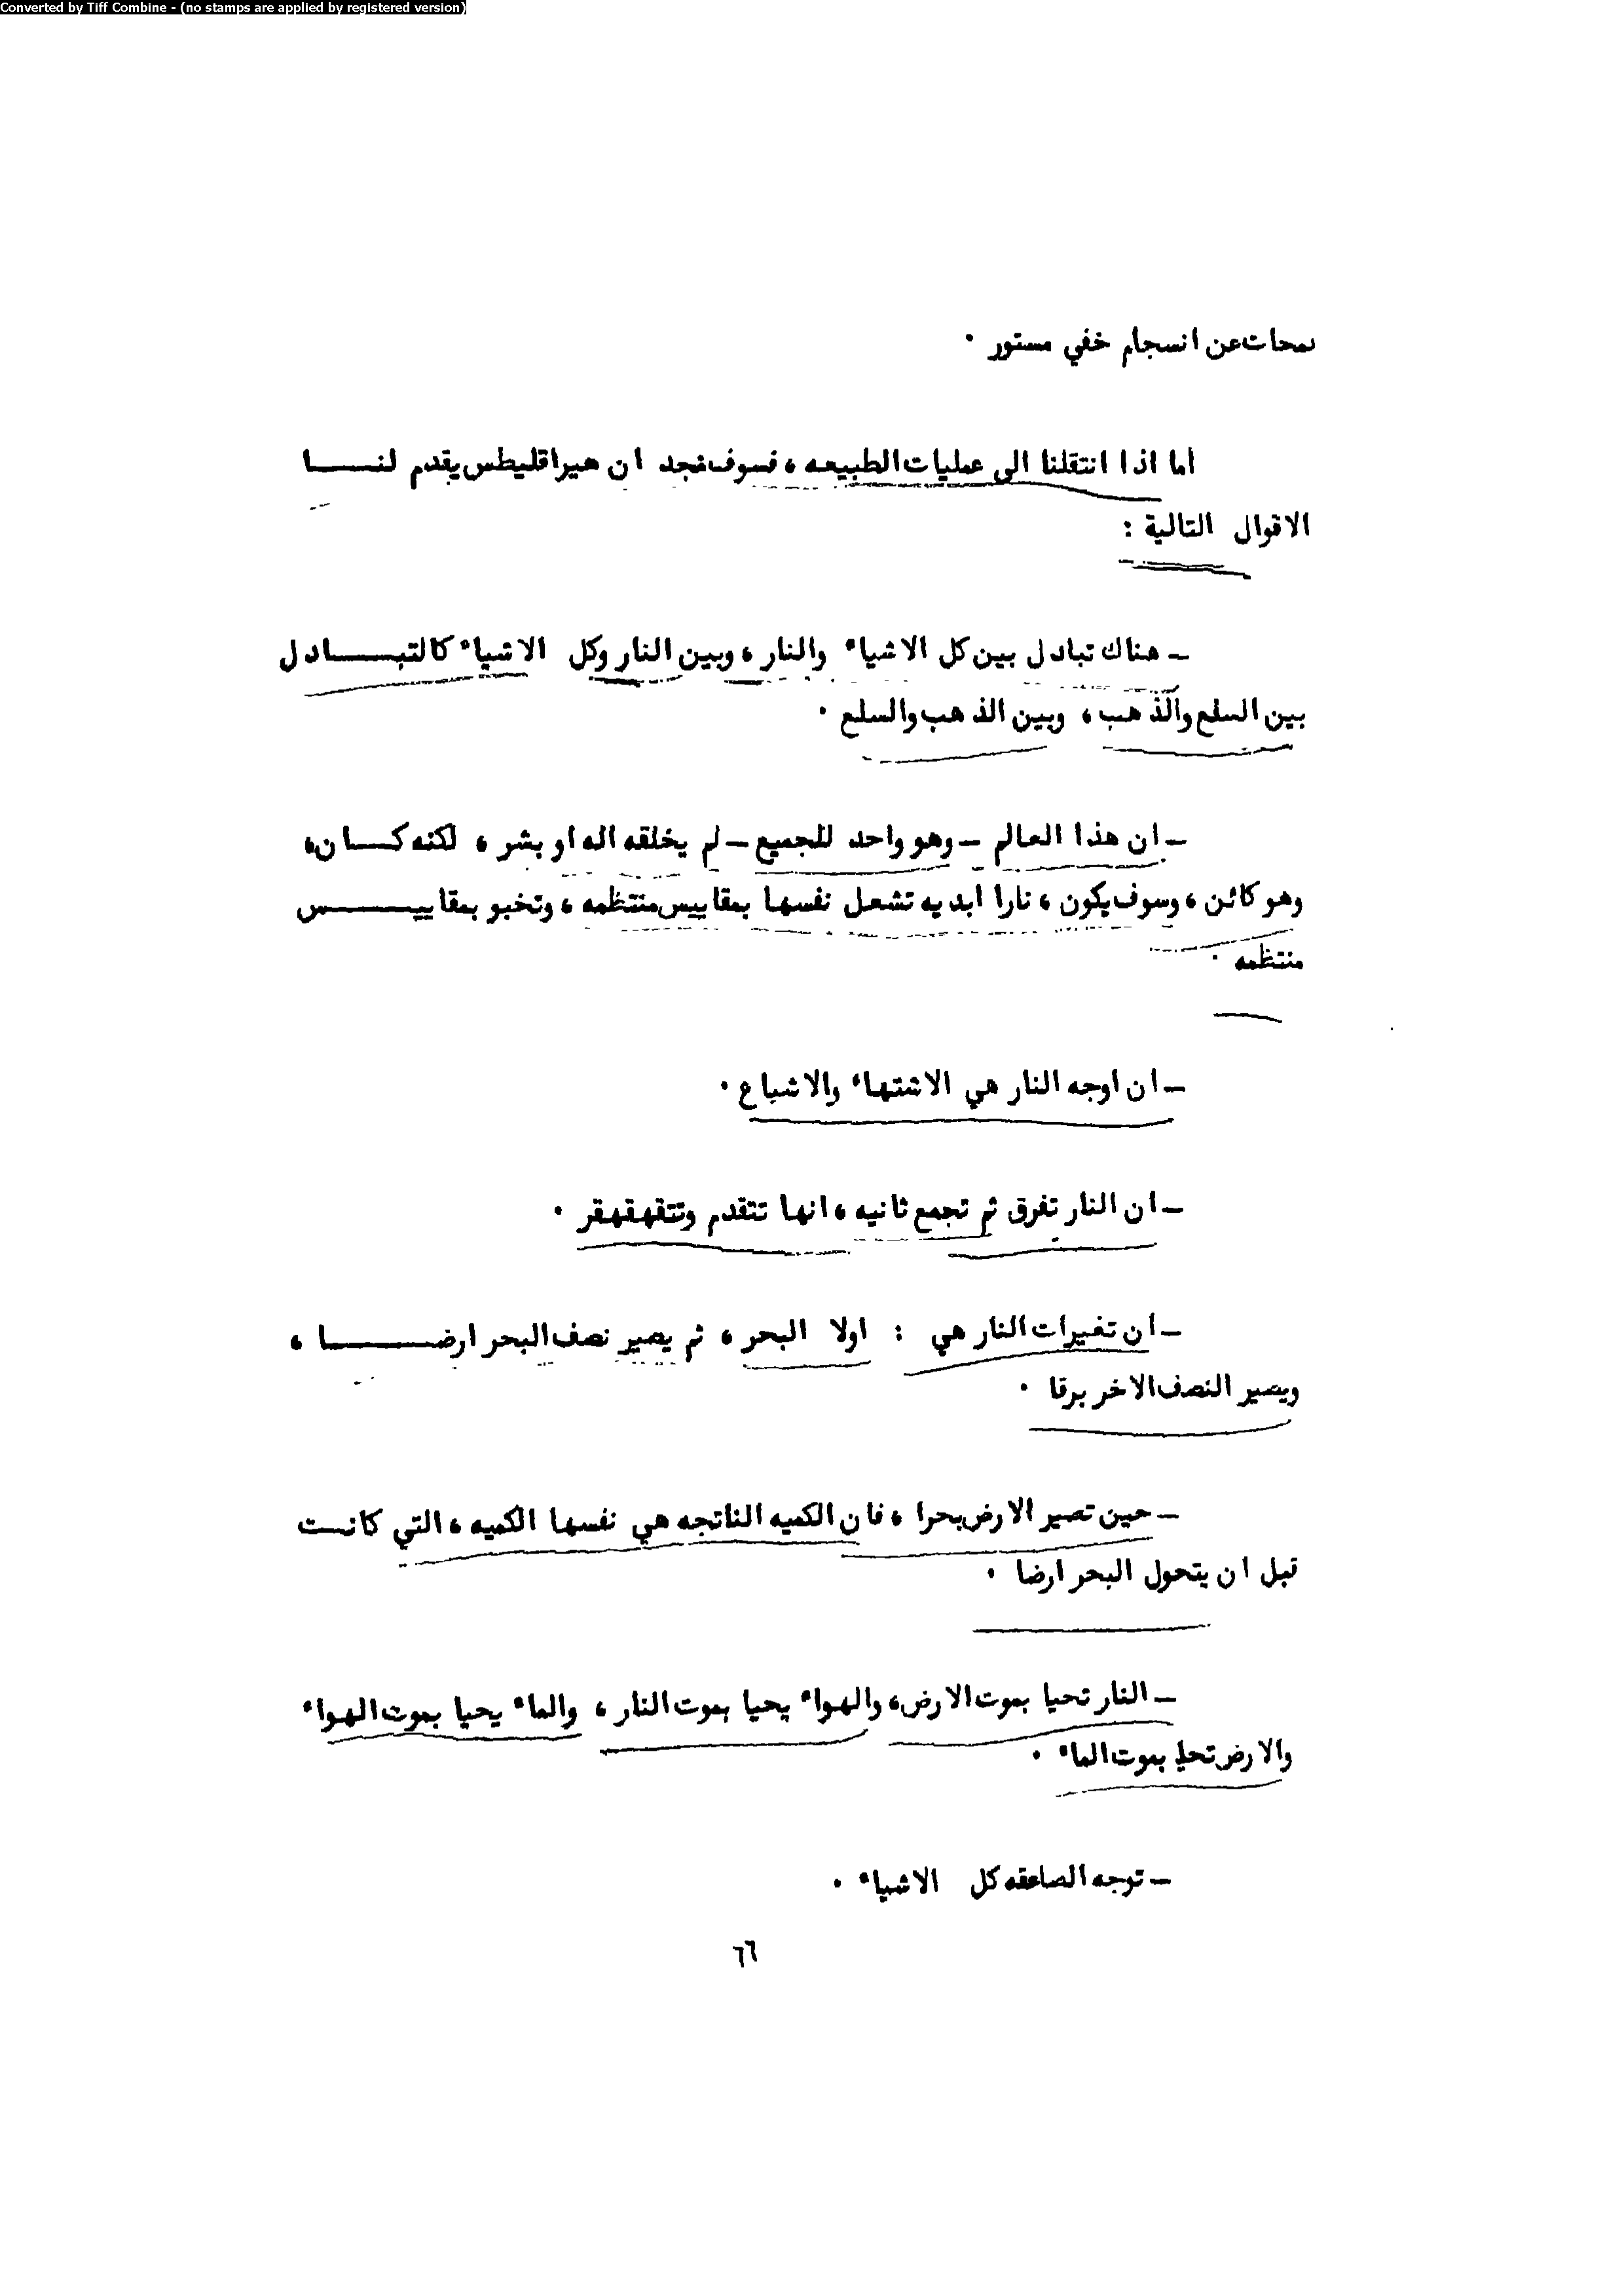 Converted by Tiff Combine - (no stamps are applied by registered version)
لمحات عن انسجام خفي مستور .
اما اذا انتقلنا الى عمليات الطبيعه ، فسوف نجد ان هيراقليطس يقدم لنــــا
الاقوال التالية :
ـ هناك تبادل بين كل الاشياء والنار ، وبين النار وكل الاشياء كالتبــــادل
بين السلع والذهب ، وبين الذهب والسلع .
ـ ان هذا العالم ـ وهو واحد للجميع ـ لم يخلقه اله او بشر ، لكنه كــان ،
وهو كائن ، وسوف يكون ، نارا ابديه تشعل نفسها بمقاييس منتظمه ، وتخبو بمقاييــــس
منتظمه .
ـ ان اوجه النار هي الاشتهاء والاشباع .
ـ ان النار تفرق ثم تجمع ثانيه ، انها تتقدم وتتقهقهقر .
ـ ان تغيرات النار هي : اولا البحر ، ثم يصير نصف البحر ارضــــــا ،
ويصير النصف الاخر برقا .
ـ حين تصير الارض بحرا ، فان الكميه الناتجه هي نفسها الكميه ، التي كانـت
قبل ان يتحول البحر ارضا .
ـ النار تحيا بموت الارض ، والهواء يحيا بموت النار ، والماء يحيا بموت الهواء
والارض تحيا بموت الماء .
ـ توجه الصاعقه كل الاشياء .
٦٦